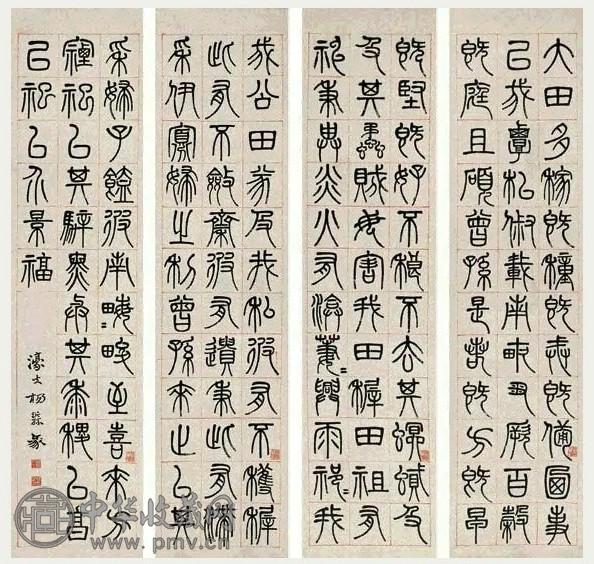 大田多稼既種既戒既備迺事
以我覃耜俶載南畝播厥百穀
既庭且碩曾孫是若既方既皁
既堅既好不稂不去其螟螣及
及其蟊賊毋害我田稺田祖有
神秉畀炎火有渰萋=興雨祁=我
我公田遂及我私彼有不穫稺
此有不斂穧彼有遺秉此有滯
采伊寡婦之利曾孫來止以其
采婦子饁彼南畝=畯至喜來方
禋祀以其騂黑與其黍稷以享
以祀以介景福
濠叟楊沂孫篆
中华收藏网
www.pmv.cn